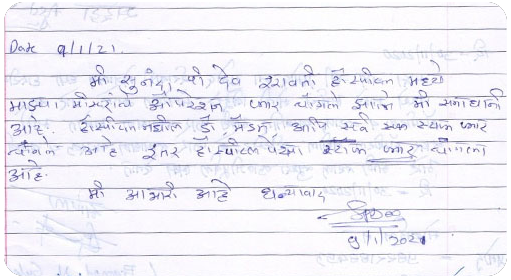 Date 9/1/21.
मी सुनंदा पी. देव इरावती हॉस्पीटल मध्ये
माझ्या मीसरांचे ऑपरेशन फार चांगले झाले मी समाधानी
आहे. हॉस्पीटलमधील डॉ. मॅडम आणि सर्व स्टाफ फार
चांगले आहे इतर हॉस्पीटल पेक्षा स्टाफ फार चांगला
आहे.
मी आभारी आहे धन्यवाद
9/1/2021